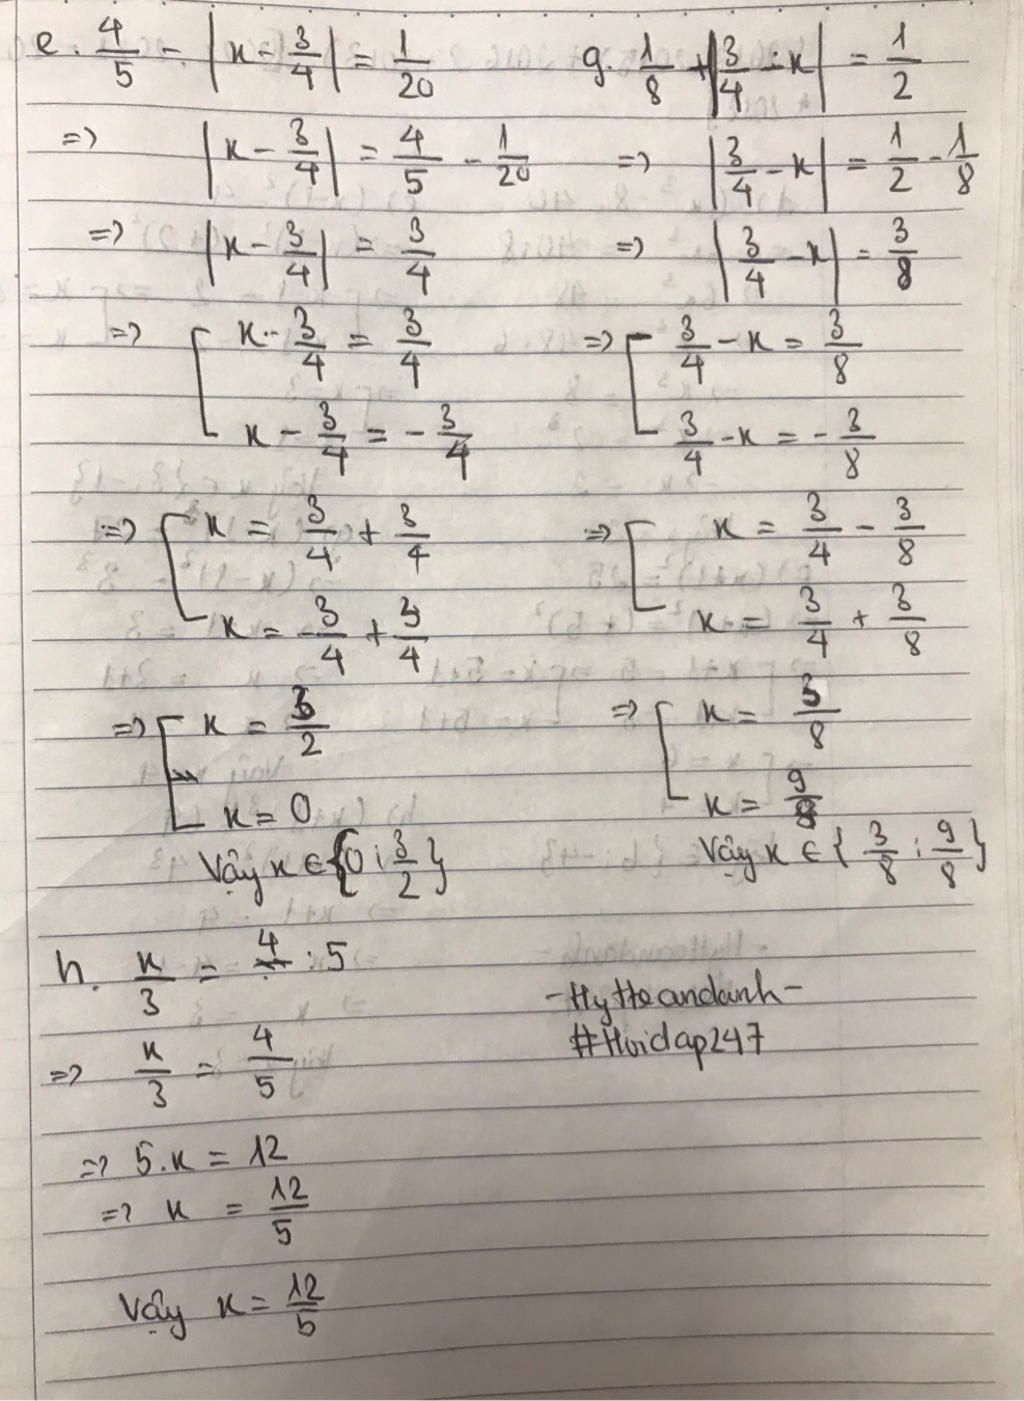 e. 4/5 - |x - 3/4| = 1/20
=> |x - 3/4| = 4/5 - 1/20
=> |x - 3/4| = 3/4
=> [ x - 3/4 = 3/4
x - 3/4 = -3/4
=> [ x = 3/4 + 3/4
x = -3/4 + 3/4
=> [ x = 3/2
x = 0
Vậy x ∈ {0; 3/2}
g. 1/8 + |3/4 - x| = 1/2
=> |3/4 - x| = 1/2 - 1/8
=> |3/4 - x| = 3/8
=> [ 3/4 - x = 3/8
3/4 - x = -3/8
=> [ x = 3/4 - 3/8
x = 3/4 + 3/8
=> [ x = 3/8
x = 9/8
Vậy x ∈ {3/8; 9/8}
h. x/3 = 4 : 5
=> x/3 = 4/5
=> 5.x = 12
=> x = 12/5
Vậy x = 12/5
-Hytteandanh-
#Hoidap247